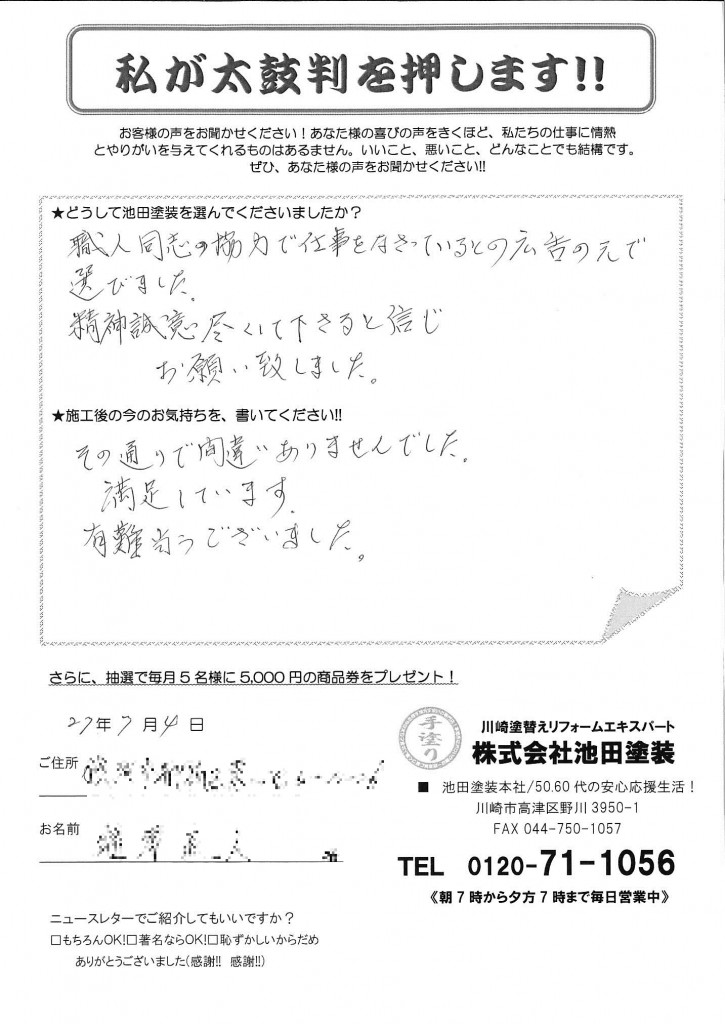 私が太鼓判を押します!!
お客様の声をお聞かせください！あなた様の喜びの声をきくほど、私たちの仕事に情熱
とやりがいを与えてくれるものはあるません。いいこと、悪いこと、どんなことでも結構です。
ぜひ、あなた様の声をお聞かせください!!
★どうして池田塗装を選んでくださいましたか？
職人同志の協力で仕事をなさっているとの広告の元で
選びました。
精神誠意尽くして下さると信じ
お願い致しました。
★施工後の今のお気持ちを、書いてください!!
その通りで間違いありませんでした。
満足しています。
有難当うございました。
さらに、抽選で毎月５名様に5,000円の商品券をプレゼント！
27年7月4日
手塗り
川崎塗替えリフォームエキスパート
株式会社池田塗装
ご住所
■ 池田塗装本社/50.60代の安心応援生活！
川崎市高津区野川3950-1
FAX 044-750-1057
お名前
TEL 0120-71-1056
《朝７時から夕方７時まで毎日営業中》
ニュースレターでご紹介してもいいですか？
□もちろんOK!□著名ならOK!□恥ずかしいからだめ
ありがとうございました(感謝!! 感謝!!)